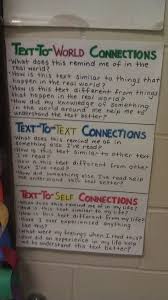 TEXT-TO-WORLD CONNECTIONS
• What does this remind me of in the
real world?
• How is this text similar to things that
happen in the real world?
• How is this text different from things
that happen in the real world?
• How did my knowledge of something
in the world around me help me to
understand the text better?
TEXT-TO-TEXT CONNECTIONS
• What does this remind me of in
something else I've read?
• How is this text similar to other text
I've read?
• How is this text different from other
things I've read?
• How did something else I've read help
me understand this text better?
TEXT-TO-SELF CONNECTIONS
• What does this remind me of in my life?
• How is this similar to my life?
• How is this different from my life?
• Have I ever experienced anything
like this?
• What were my feelings when I read
• How did an experience in my life help
me to understand this text better?